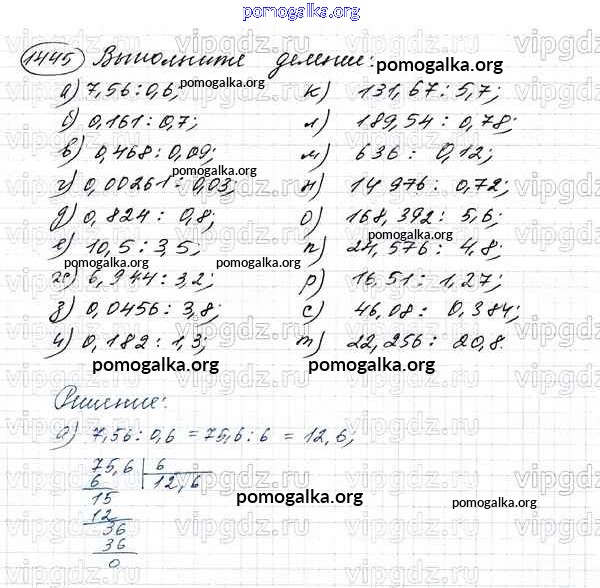 pomogalka.org
1445 Выполните деление: pomogalka.org
а) 7,56 : 0,6; pomogalka.org к) 131,67 : 5,7;
б) 0,161 : 0,7; л) 189,54 : 0,78;
в) 0,468 : 0,09; м) 636 : 0,12;
pomogalka.org
г) 0,00261 : 0,03; н) 14 976 : 0,72;
д) 0,824 : 0,8; о) 168,392 : 5,6;
е) 10,5 : 3,5; п) 24,576 : 4,8;
pomogalka.org pomogalka.org
ж) 6,944 : 3,2; р) 16,51 : 1,27;
з) 0,0456 : 3,8; с) 46,08 : 0,384;
и) 0,182 : 1,3; т) 22,256 : 20,8.
pomogalka.org pomogalka.org
Решение:
а) 7,56 : 0,6 = 75,6 : 6 = 12,6;
75,6 6
6 12,6
15
12
36
36
0
pomogalka.org pomogalka.org
vipgdz.ru